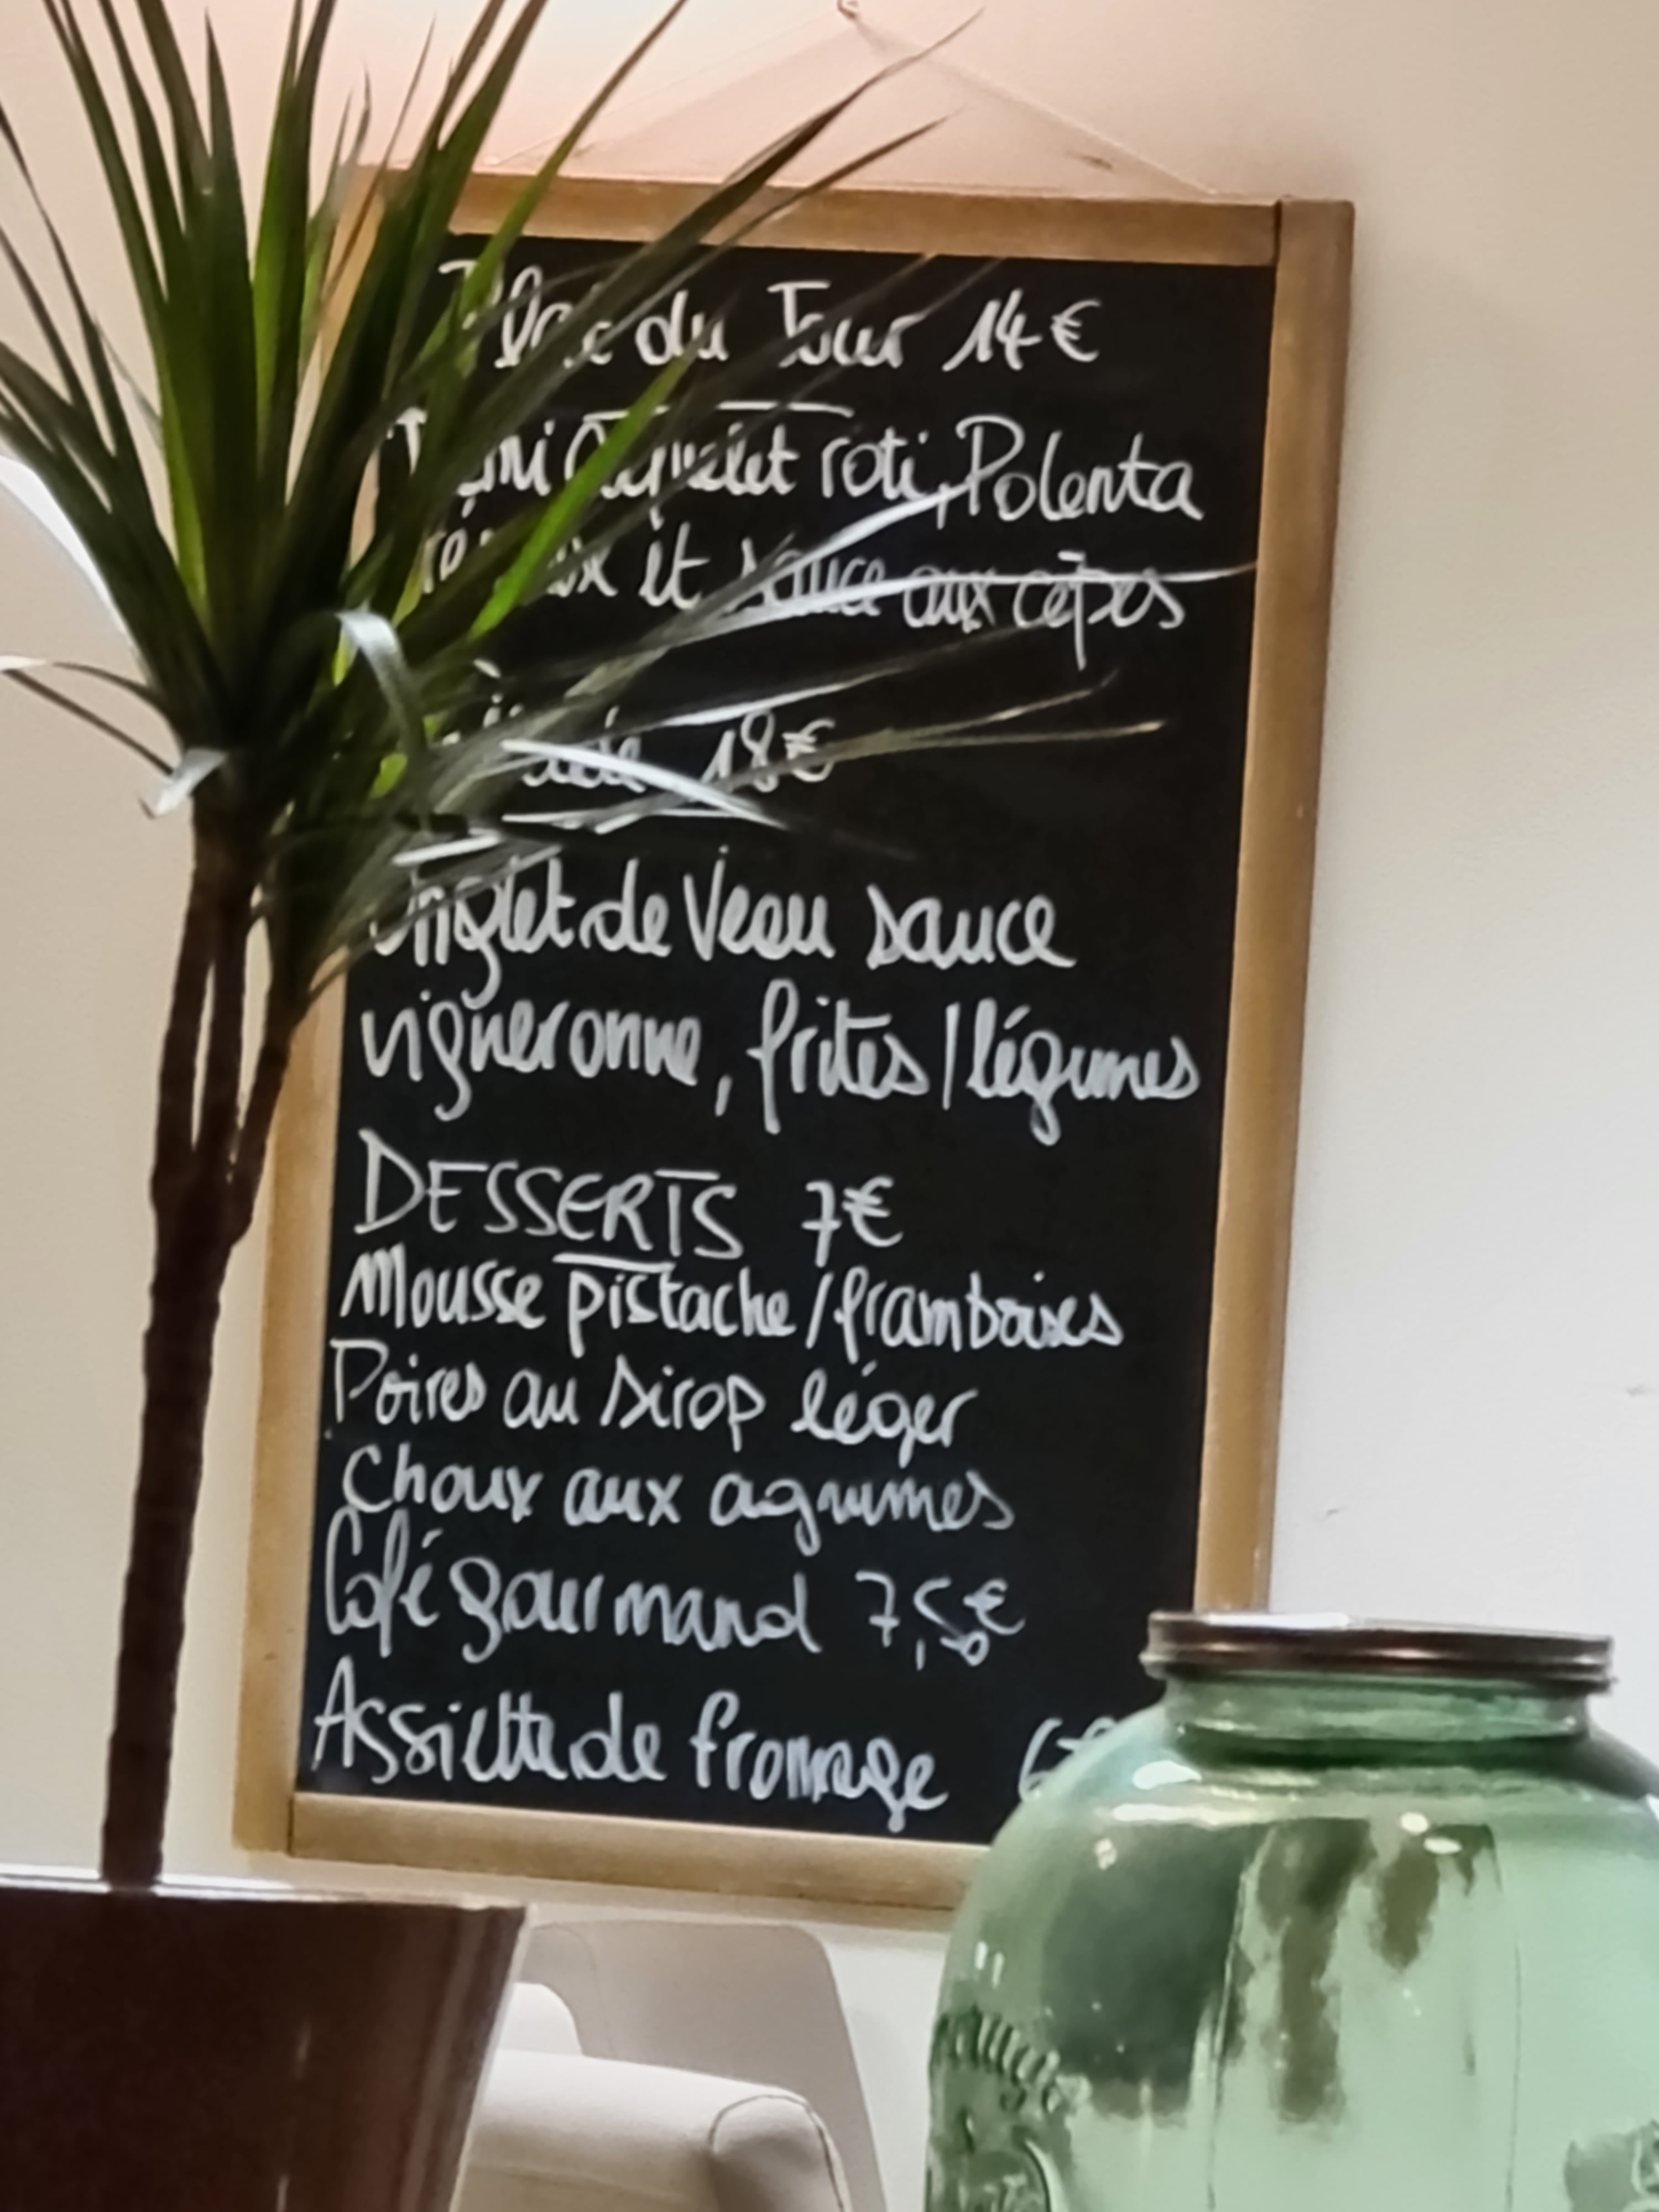 Plat du Jour 14€
Demi Coquelet roti, Polenta
crémeux et sauce aux cèpes
18€
Onglet de Veau sauce
vigneronne, frites/légumes
DESSERTS 7€
Mousse pistache/framboises
Poires au sirop léger
Choux aux agrumes
Café gourmand 7,50€
Assiette de fromage